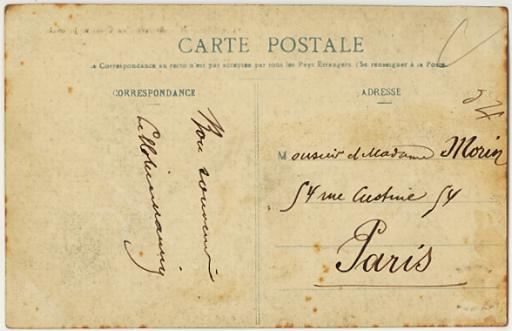 CARTE POSTALE
La Correspondance au recto n'est pas acceptée par tous les Pays Etrangers. (Se renseigner à la Poste.
CORRESPONDANCE
Bon souvenir
ADRESSE
54
Monsieur et Madame Morin
54 rue Custine 54
Paris